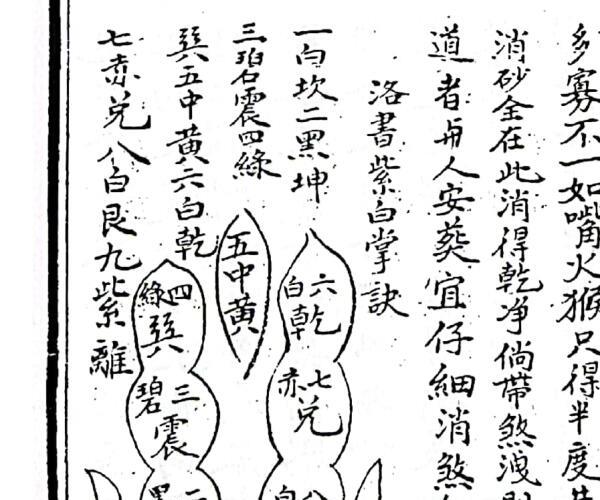 多寡不一如嘴火猴只得半度
消砂全在此消得乾净倘帶煞洩
道者毋人安葬宜仔細消煞
洛書紫白掌訣
一白坎二黑坤
三碧震四綠
巽五中黃六白乾
七赤兌八白艮九紫離
六白乾
七赤兌
八白
五中黃
四綠巽
三碧震
二黑